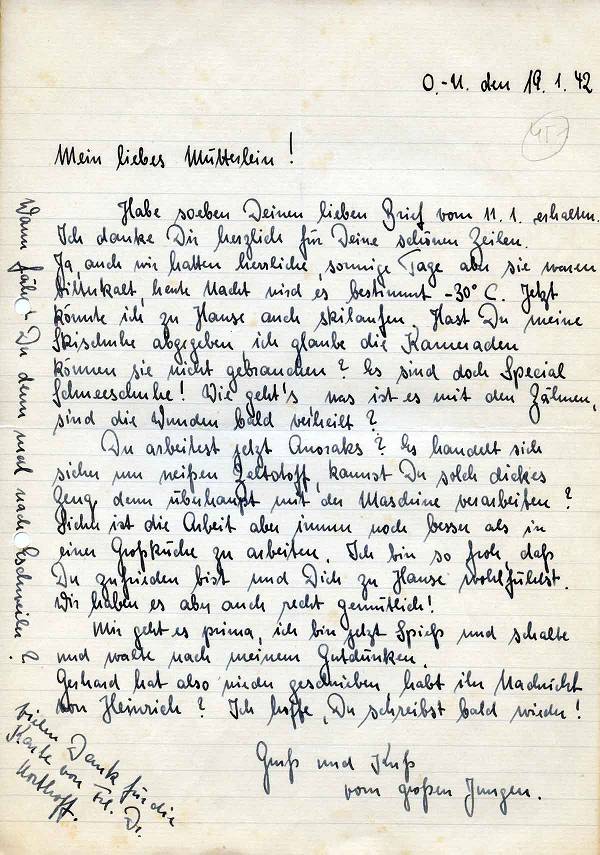 O.-U. den 19.1.42
457
Mein liebes Mütterlein!
Habe soeben Deinen lieben Brief vom 11.1. erhalten.
Ich danke Dir herzlich für Deine schönen Zeilen.
Ja, auch wir hatten herrliche, sonnige Tage aber sie waren
bitterkalt, heute Nacht wird es bestimmt -30° C. Jetzt
könnte ich zu Hause auch skilaufen. Hast Du meine
Skischuhe abgegeben, ich glaube die Kameraden
können sie nicht gebrauchen? Es sind doch Special
Schneeschuhe! Wie geht's was ist es mit den Zähnen,
sind die Wunden bald verheilt?
Du arbeitest jetzt Anoraks? Es handelt sich
sicher um weißen Zeltstoff, kannst Du solch dickes
Zeug denn überhaupt mit der Maschine verarbeiten?
Sicher ist die Arbeit aber immer noch besser als in
einer Großküche zu arbeiten. Ich bin so froh, daß
Du zufrieden bist und Dich zu Hause wohlfühlst.
Wir haben es aber auch recht gemütlich!
Mir geht es prima, ich bin jetzt Spieß und schalte
und walte nach meinem Gutdünken.
Gerhard hat also wieder geschrieben, habt ihr Nachricht
von Heinrich? Ich hoffe, Du schreibst bald wieder!
Gruß und Kuß
vom großen Jungen.
Wann fährst Du denn mal nach Eschweiler?
Vielen Dank für die
Karte von Frl. Dr.